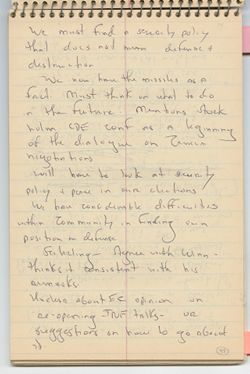 We must find a security policy
that does not mean defense +
destruction
We now have the missiles as a
fact. Must think on what to do
in the future. Mentions Stock
holm CDE conf as a beginning
of the dialogue on
negotiations
will have to look at security
policy + peace in our elections
We have considerable difficulties
within Community in finding own
position in defense
Agree with
thinks + consistent with his
remarks.
Unclear about EC opinion on
re-opening INF talks - no
suggestions on how to go about
it